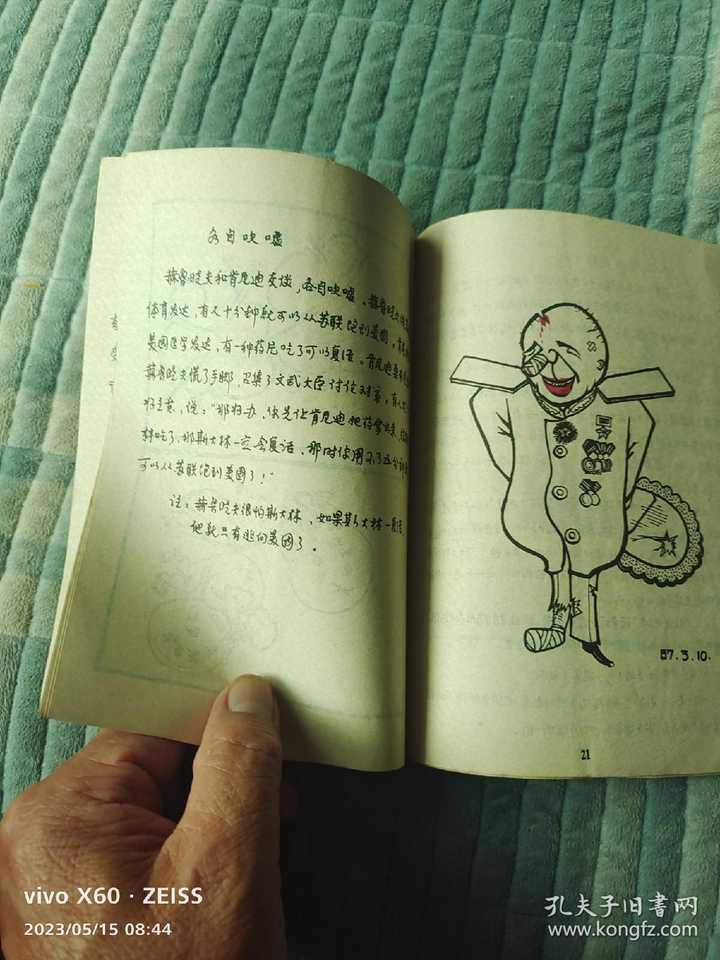 各自吹嘘
赫鲁晓夫和肯尼迪交谈,各自吹嘘。赫鲁晓夫说
体育发达,有人十分钟就可以从苏联跑到美国,肯
美国医学发达,有一种药死人吃了可以复活。肯尼迪
赫鲁晓夫慌了手脚,召集了文武大臣讨论对策,有人
好主意,说:“那好办,你先让肯尼迪把药拿出来,给
林吃了,那斯大林一定会复活,那时你用不了十分钟
可以从苏联跑到美国了!”
注:赫鲁晓夫很怕斯大林,如果斯大林一复活
他就只有逃向美国了。
87.3.10.
21
vivo X60 · ZEISS
2023/05/15 08:44
孔夫子旧书网
www.kongfz.com